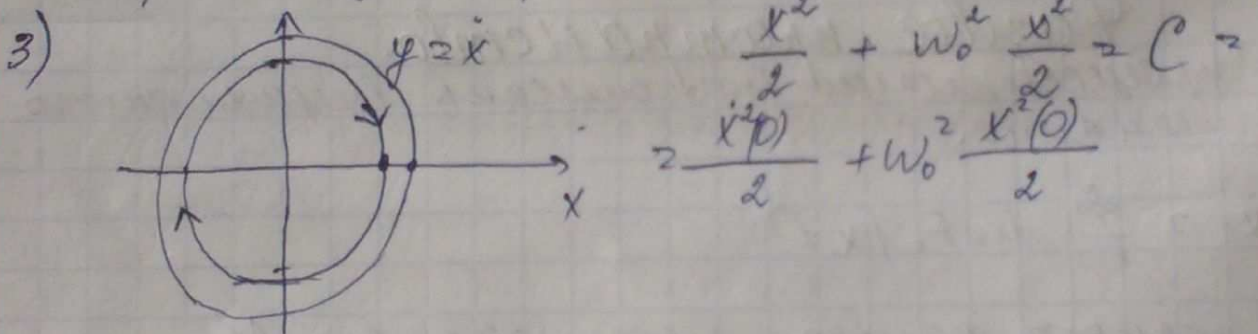 3)
y = ẋ
x
ẋ²/2 + ω₀² x²/2 = C =
= ẋ²(0)/2 + ω₀² x²(0)/2